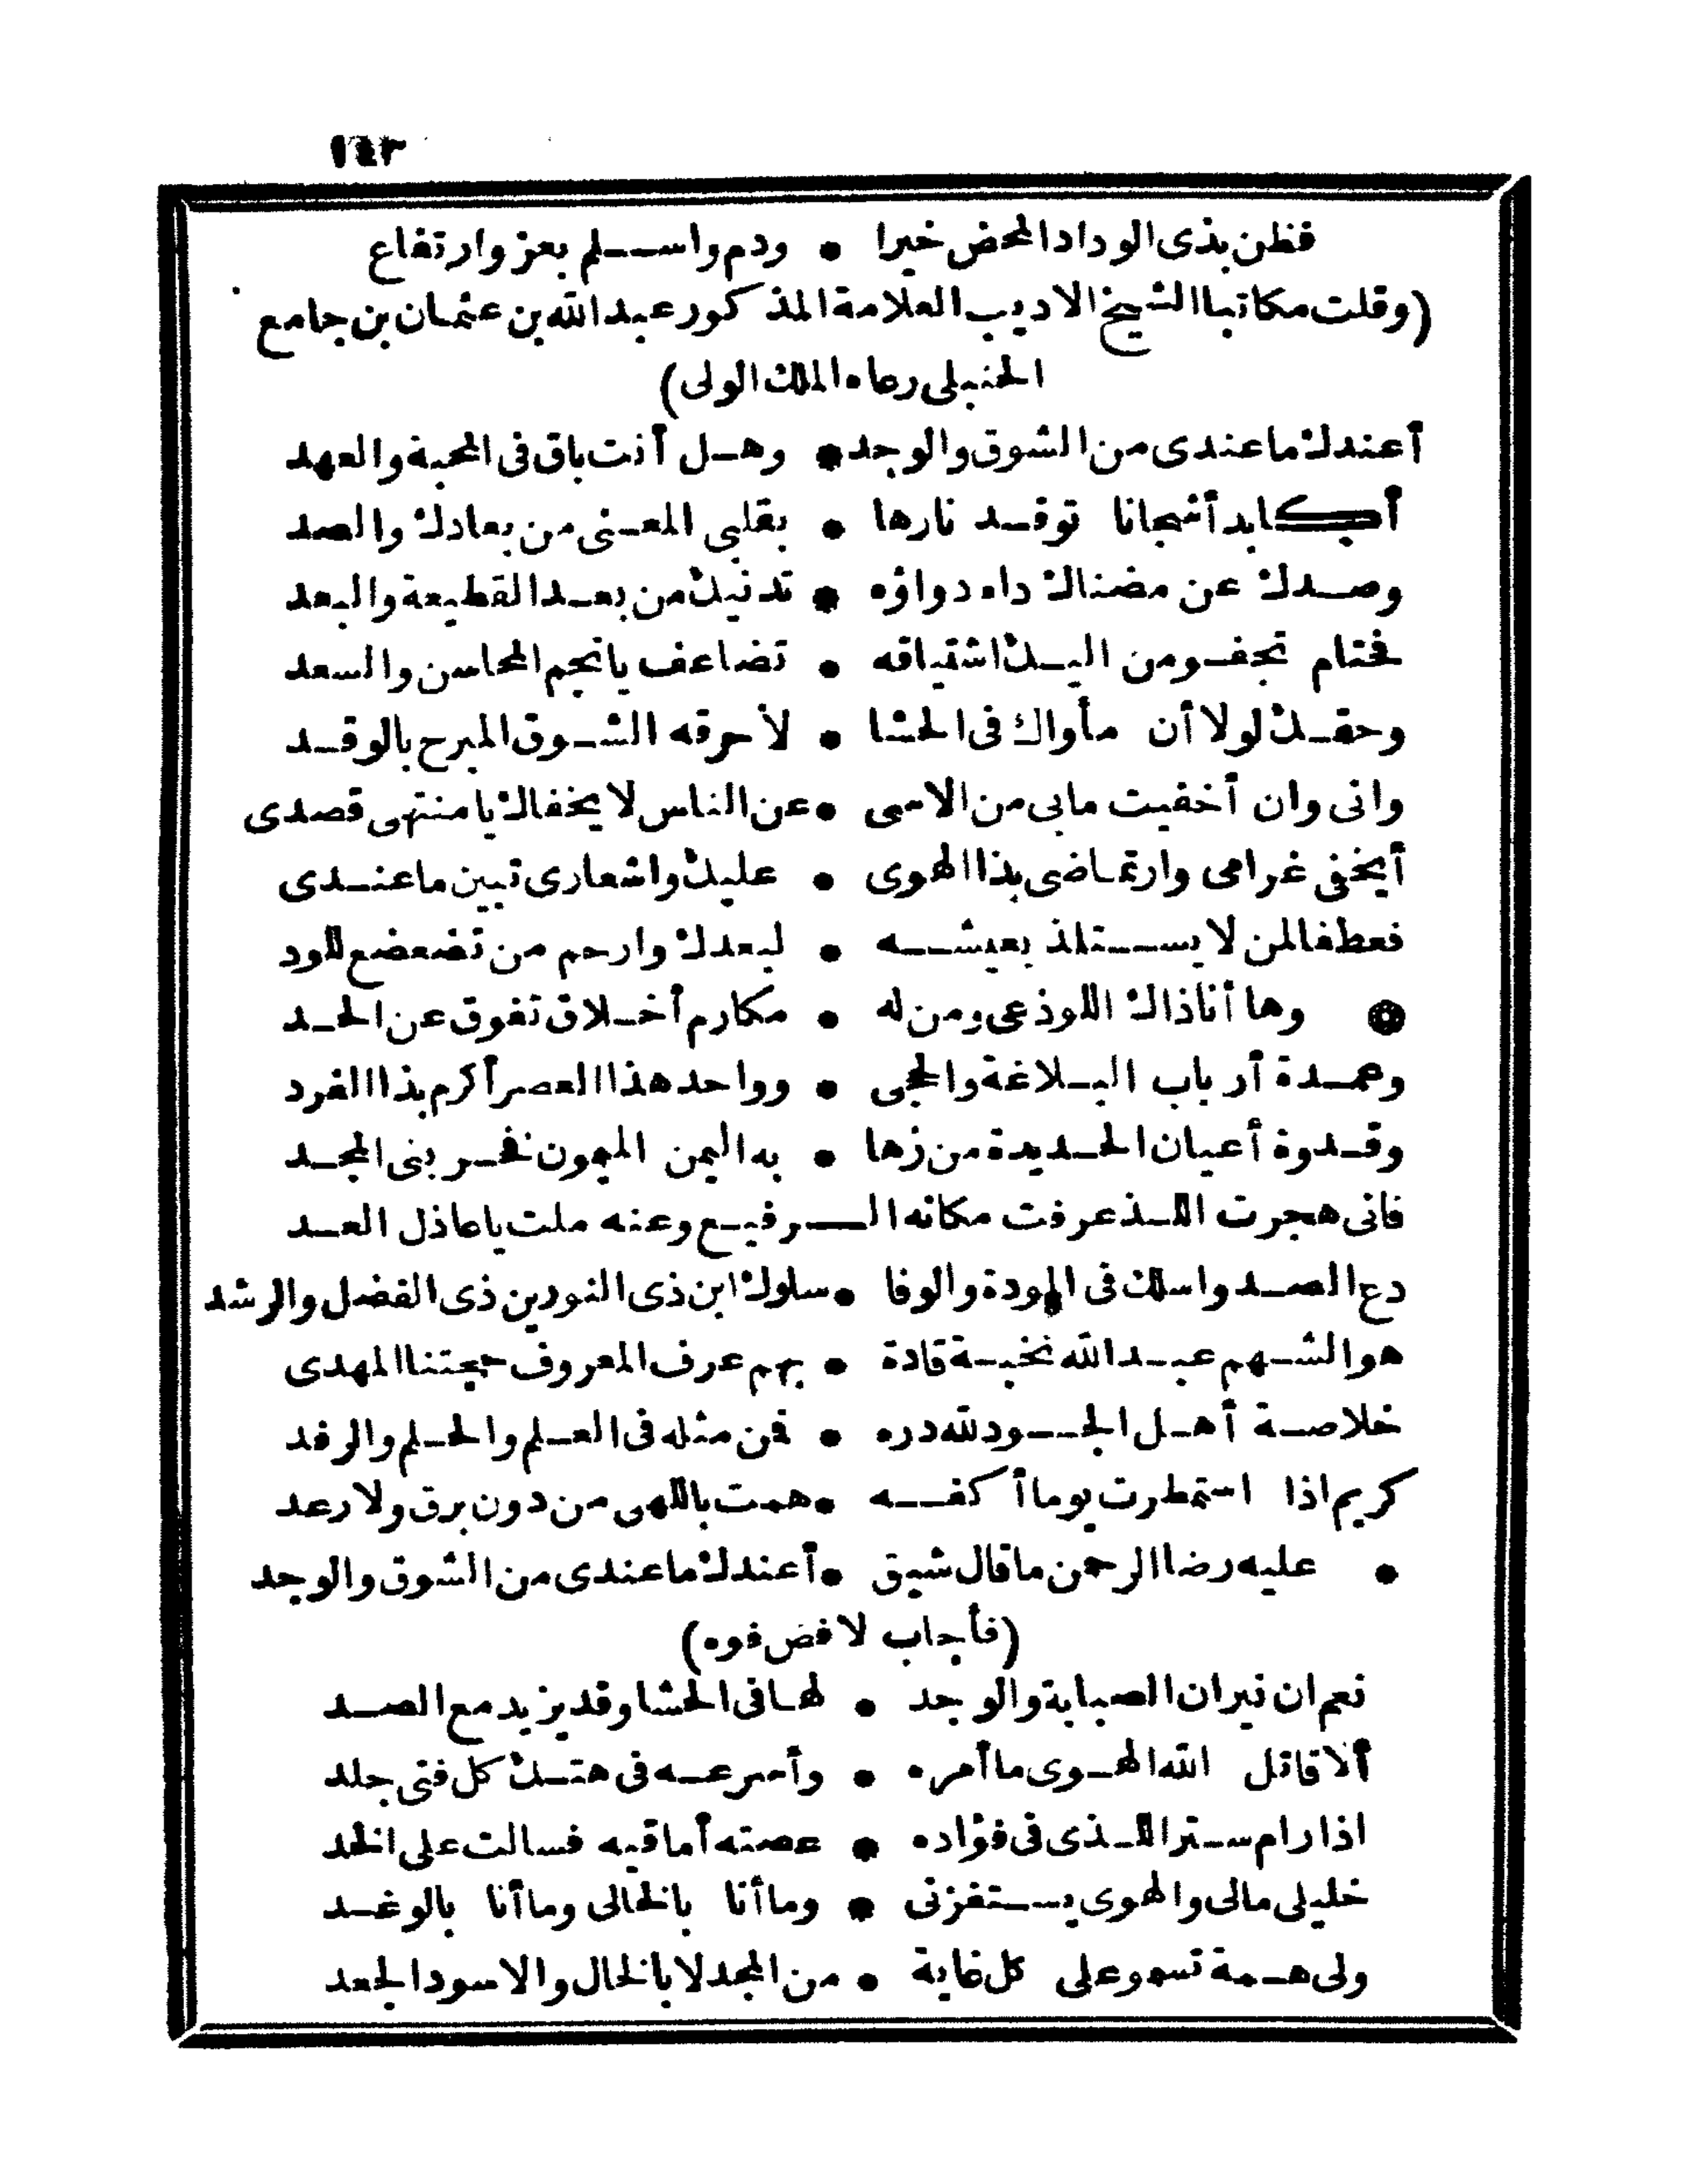 ١٤٣
فظن بذى الوداد المحض خيرا • ودم واسلم بعز وارتفاع
(وقلت مكاتبا الشيخ الاديب العلامة المذكور عبد الله بن عثمان بن جامع
الحنبلى رعاه الملك الولى)
أعندك ما عندى من الشوق والوجد • وهل أنت باق فى المحبة والعهد
أكابد أشجانا توقد نارها • بقلبى المعنى من بعادك والصد
وصدك عن مضناك داء دواؤه • تدنيك من بعد القطيعة والبعد
فحتام تجفو من اليك اشتياقه • تضاعف يا نجم المحاسن والسعد
وحقك لولا أن مأواك فى الحشا • لأحرقه الشوق المبرح بالوقد
وانى وان أخفيت مابى من الاسى • عن الناس لا يخفاك يا منتهى قصدى
أيخفى غرامى وارتماضى بذا الهوى • عليك واشعارى تبين ما عندى
فعطفا لمن لا يستلذ بعيشه • لبعدك وارحم من تضعضع للود
وها أنا ذاك اللوذعى ومن له • مكارم أخلاق تفوق عن الحد
وعمدة أرباب البلاغة والحجى • وواحد هذا العصر أكرم بذا الفرد
وقدوة أعيان الحديدة من زها • به اليمن الميمون فخر بنى المجد
فانى هجرت اللذ عرفت مكانه الرفيع وعنه ملت يا عاذل العد
دع الصد واسلك فى المودة والوفا • سلوك ابن ذى النورين ذى الفضل والرشد
هو الشهم عبد الله نخبة قادة • بهم عرف المعروف حجتنا المهدى
خلاصة أهل الجود لله دره • فمن مثله فى العلم والحلم والرفد
كريم اذا استمطرت يوما أكفه • همت باللهى من دون برق ولا رعد
• عليه رضا الرحمن ما قال شيق • أعندك ما عندى من الشوق والوجد
(فأجاب لا فض فوه)
نعم ان نيران الصبابة والوجد • لها فى الحشا وقد يزيد مع الصد
ألا قاتل الله الهوى ما أمره • وأسرعه فى هتك كل فتى جلد
اذا رام ستر اللذى فى فؤاده • عصته أماقيه فسالت على الخد
خليلى مالى والهوى يستفزنى • وما أنا بالخالى وما أنا بالوغد
ولى همة تسمو على كل غاية • من المجد لا بالخال والاسود الجعد